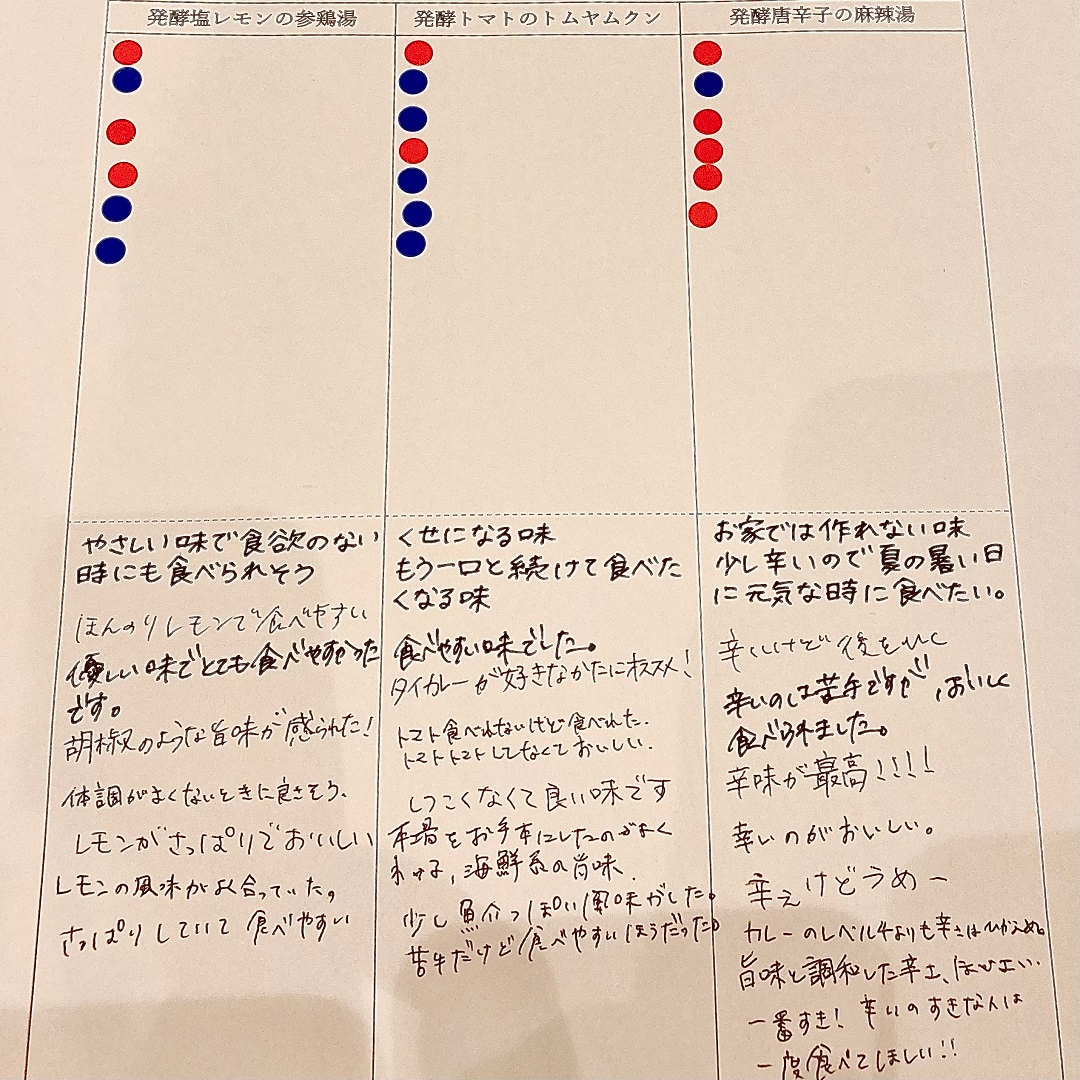 発酵塩レモンの参鶏湯
やさしい味で食欲のない
時にも食べられそう
ほんのりレモンで食べやすい
優しい味でとても食べやすかった
です。
胡椒のような旨味が感られた!
体調がよくないときに良さそう、
レモンがさっぱりでおいしい
レモンの風味がよく合っていた。
さっぱりしていて食べやすい
発酵トマトのトムヤムクン
くせになる味
もう一口と続けて食べた
くなる味
食べやすい味でした。
タイカレーが好きなかたにオススメ!
トマト食べれないけど食べれた.
トマトトマトしてなくておいしい.
しつこくなくて良い味です
本場をお手本にしたのがよく
わかる,海鮮系の旨味.
少し魚介っぽい風味がした。
苦手だけど食べやすいほうだった。
発酵唐辛子の麻辣湯
お家では作れない味
少し辛いので夏の暑い日
に元気な時に食べたい。
辛いけど後を
辛いのは苦手ですが,おいしく
食べられました。
辛味が最高!!!!
辛いのがおいしい。
辛えけどうめー
カレーのレベル4よりも辛さはひかえめ。
旨味と調和した辛さ、ほどよい.
一番すき!辛いのすきな人は
一度食べてほしい!!